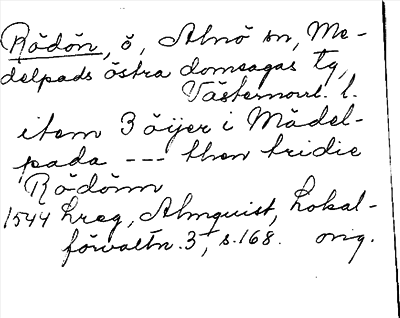 Rödön, ö, Alnö sn, Me-
delpads östra domsagas tg,
Västernorrl. l.
item 3 öijer i Mädel-
pada --- then tridie
Rödönn
1544 hreg, Almquist, Lokal-
förvaltn. 3, s. 168. orig.